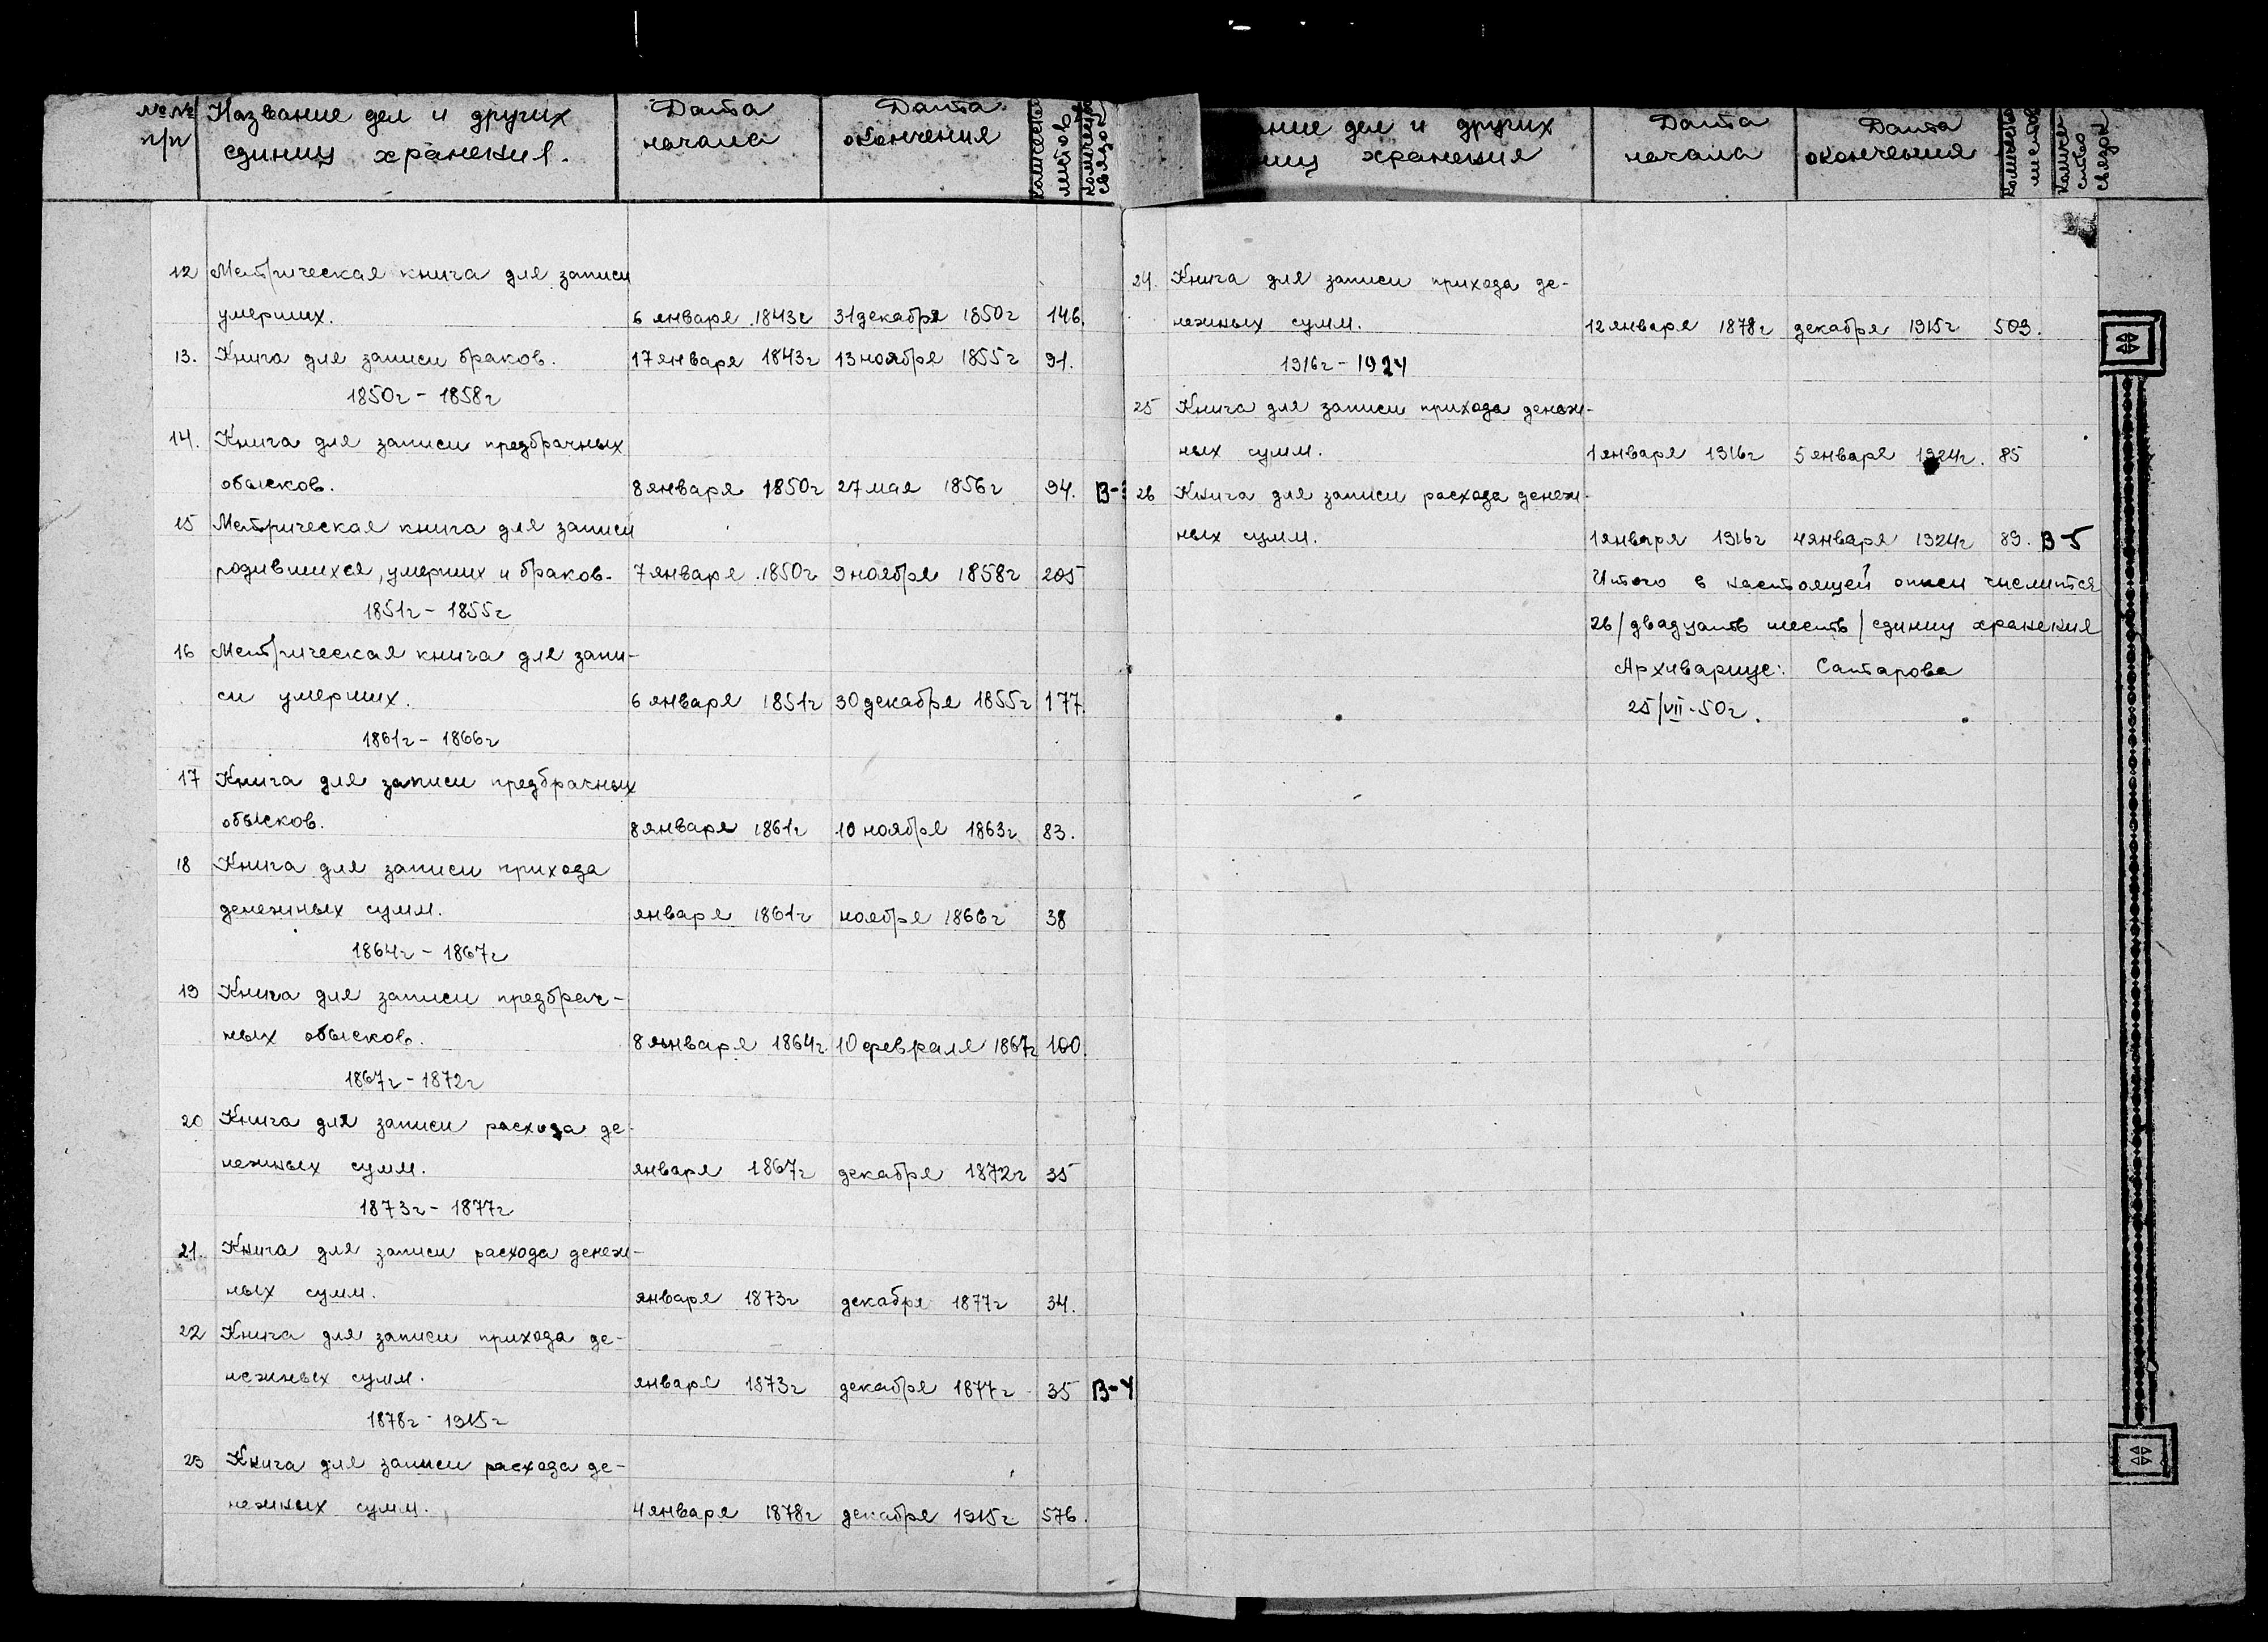 №№ п/п Название дел и других единиц хранения. Дата начала Дата окончения количество листов количество связок
12 Метрическая книга для записи
умерших. 6 января 1843г 31 декабря 1850г 146.
13. Книга для записи браков. 17 января 1843г 13 ноября 1855г 91.
1850г - 1858г
14. Книга для записи предбрачных
обысков. 8 января 1850г 27 мая 1856г 94. В-3
15 Метрическая книга для записи
родившихся, умерших и браков. 7 января 1850г 9 ноября 1858г 205
1851г - 1855г
16 Метрическая книга для запи-
си умерших. 6 января 1851г 30 декабря 1855г 177.
1861г - 1866г
17 Книга для записи предбрачных
обысков. 8 января 1861г 10 ноября 1863г 83.
18 Книга для записи прихода
денежных сумм. января 1861г ноября 1866г 38
1864г - 1867г
19 Книга для записи предбрач-
ных обысков. 8 января 1864г 10 февраля 1867г 100.
1867г - 1872г
20 Книга для записи расхода де-
нежных сумм. января 1867г декабря 1872г 35
1873г - 1877г
21. Книга для записи расхода денеж-
ных сумм. января 1873г декабря 1877г 34.
22 Книга для записи прихода де-
нежных сумм. января 1873г декабря 1877г 35 В-4
1878г - 1915г
23 Книга для записи расхода де-
нежных сумм. 4 января 1878г декабря 1915г 576.
ние дел и других ниц хранения Дата начала Дата окончения количество листов количество связок
24. Книга для записи прихода де-
нежных сумм. 12 января 1878г декабря 1915г 503.
1916г - 1924
25 Книга для записи прихода денеж-
ных сумм. 1 января 1916г 5 января 1924г. 85
26 Книга для записи расхода денеж-
ных сумм. 1 января 1916г 4 января 1924г 89. В-5
Итого в настоящей описи числится
26/двадцать шесть/единиц хранения
Архивариус: Сатарова
25/VII-50г.